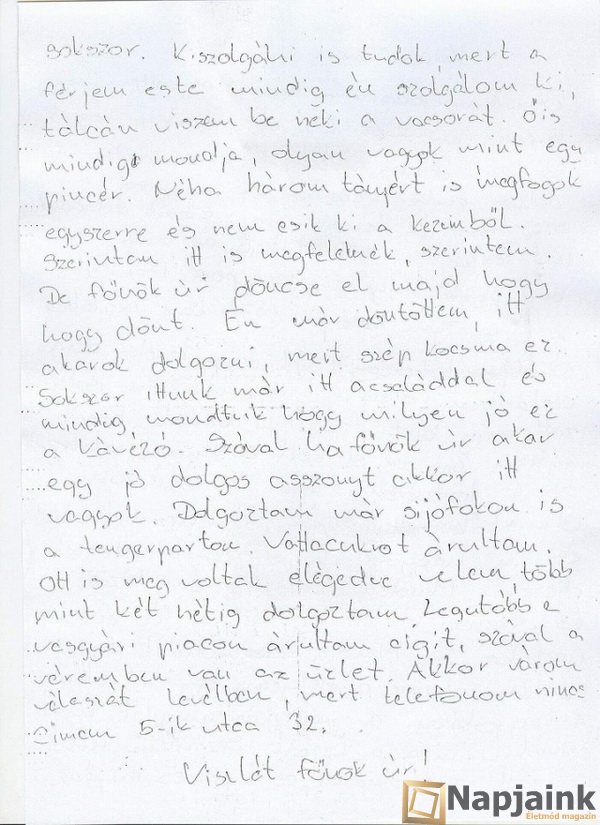 sokszor. Kiszolgálni is tudok, mert a
férjem este mindig én szolgálom ki,
tálcán viszem be neki a vacsorát. Ő is
mindig mondja, olyan vagyok mint egy
pincér. Néha három tányért is megfogok
egyszerre és nem esik ki a kezemből.
Szerintem itt is megfelelnék, szerintem.
De főnök úr döncse el majd hogy
hogy dönt. Én már döntöttem, itt
akarok dolgozni, mert szép kocsma ez.
Sokszor ittunk már itt acsaláddal és
mindig mondtuk hogy milyen jó ez
a kávézó. Szóval ha főnök úr akar
egy jó dolgos asszonyt akkor itt
vagyok. Dolgoztam már sijófokon is
a tengerparton. Vattacukrot árultam.
Ott is meg voltak elégedve velem, több
mint két hétig dolgoztam. Legutóbb a
vasgyári piacon árultam cigit, szóval a
véremben van az üzlet. Akkor várom
válaszát levélben, mert telefonom nincs
Cimem 5-ik utca 32.
Viszlát főnök úr!
Napjaink
Életmód magazin